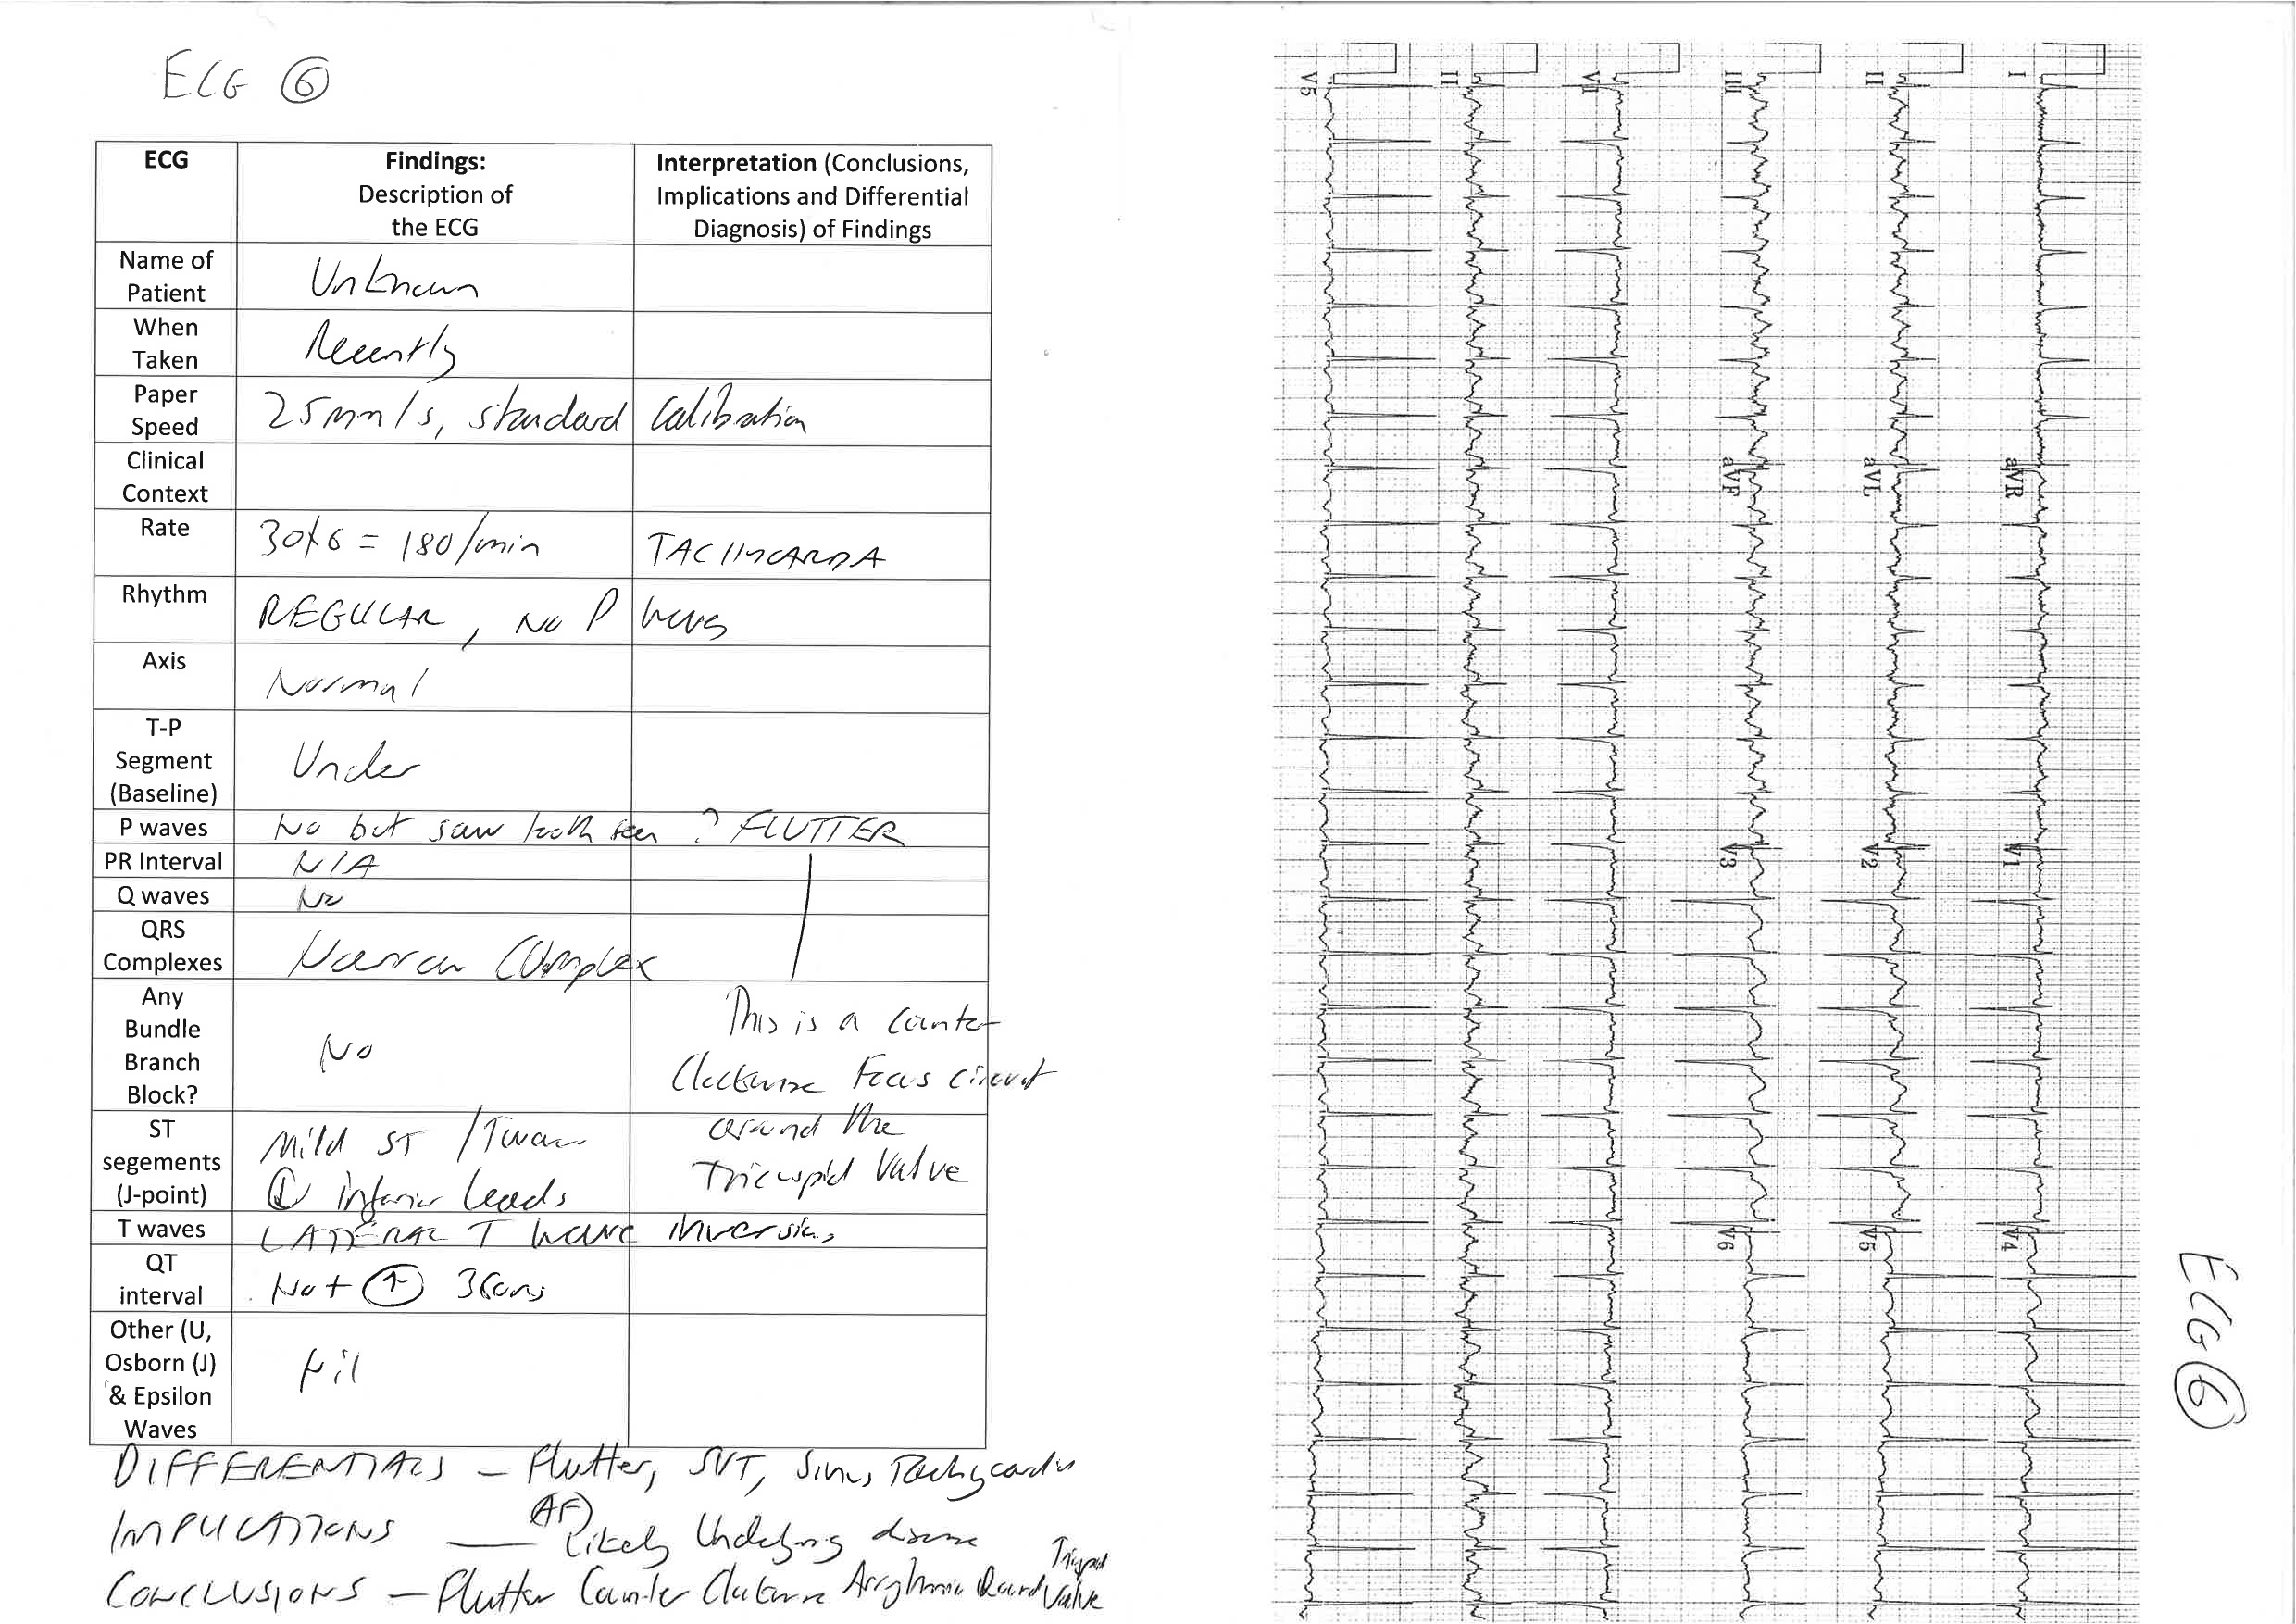 ECG ⑥
ECG
Findings:
Description of
the ECG
Interpretation (Conclusions,
Implications and Differential
Diagnosis) of Findings
Name of
Patient
Unknown
When
Taken
Recently
Paper
Speed
25mm/s, standard Calibration
Clinical
Context
Rate
30x6 = 180/min
TACHYCARDIA
Rhythm
REGULAR, No P waves
Axis
Normal
T-P
Segment
(Baseline)
Under
P waves
No but saw tooth seen ? FLUTTER
PR Interval
N/A
Q waves
No
QRS
Complexes
Narrow Complex
Any
Bundle
Branch
Block?
No
This is a Counter
Clockwise Focus circuit
around the
Tricuspid Valve
ST
segements
(J-point)
Mild ST / Twave
↓ inferior leads
T waves
LATERAL T WAVE inversion
QT
interval
Not ↑ 360ms
Other (U,
Osborn (J)
& Epsilon
Waves
Nil
DIFFERENTIALS – Flutter, SVT, Sinus Tachycardia
(AF)
IMPLICATIONS — Likely Underlying disease
CONCLUSIONS – Flutter Counter Clockwise Arrythmia Round Tricuspid Valve
I
aVR
V1
V4
II
aVL
V2
V5
III
aVF
V3
V6
V1
II
V5
ECG ⑥